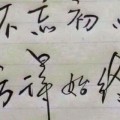 不忘初
方得始终